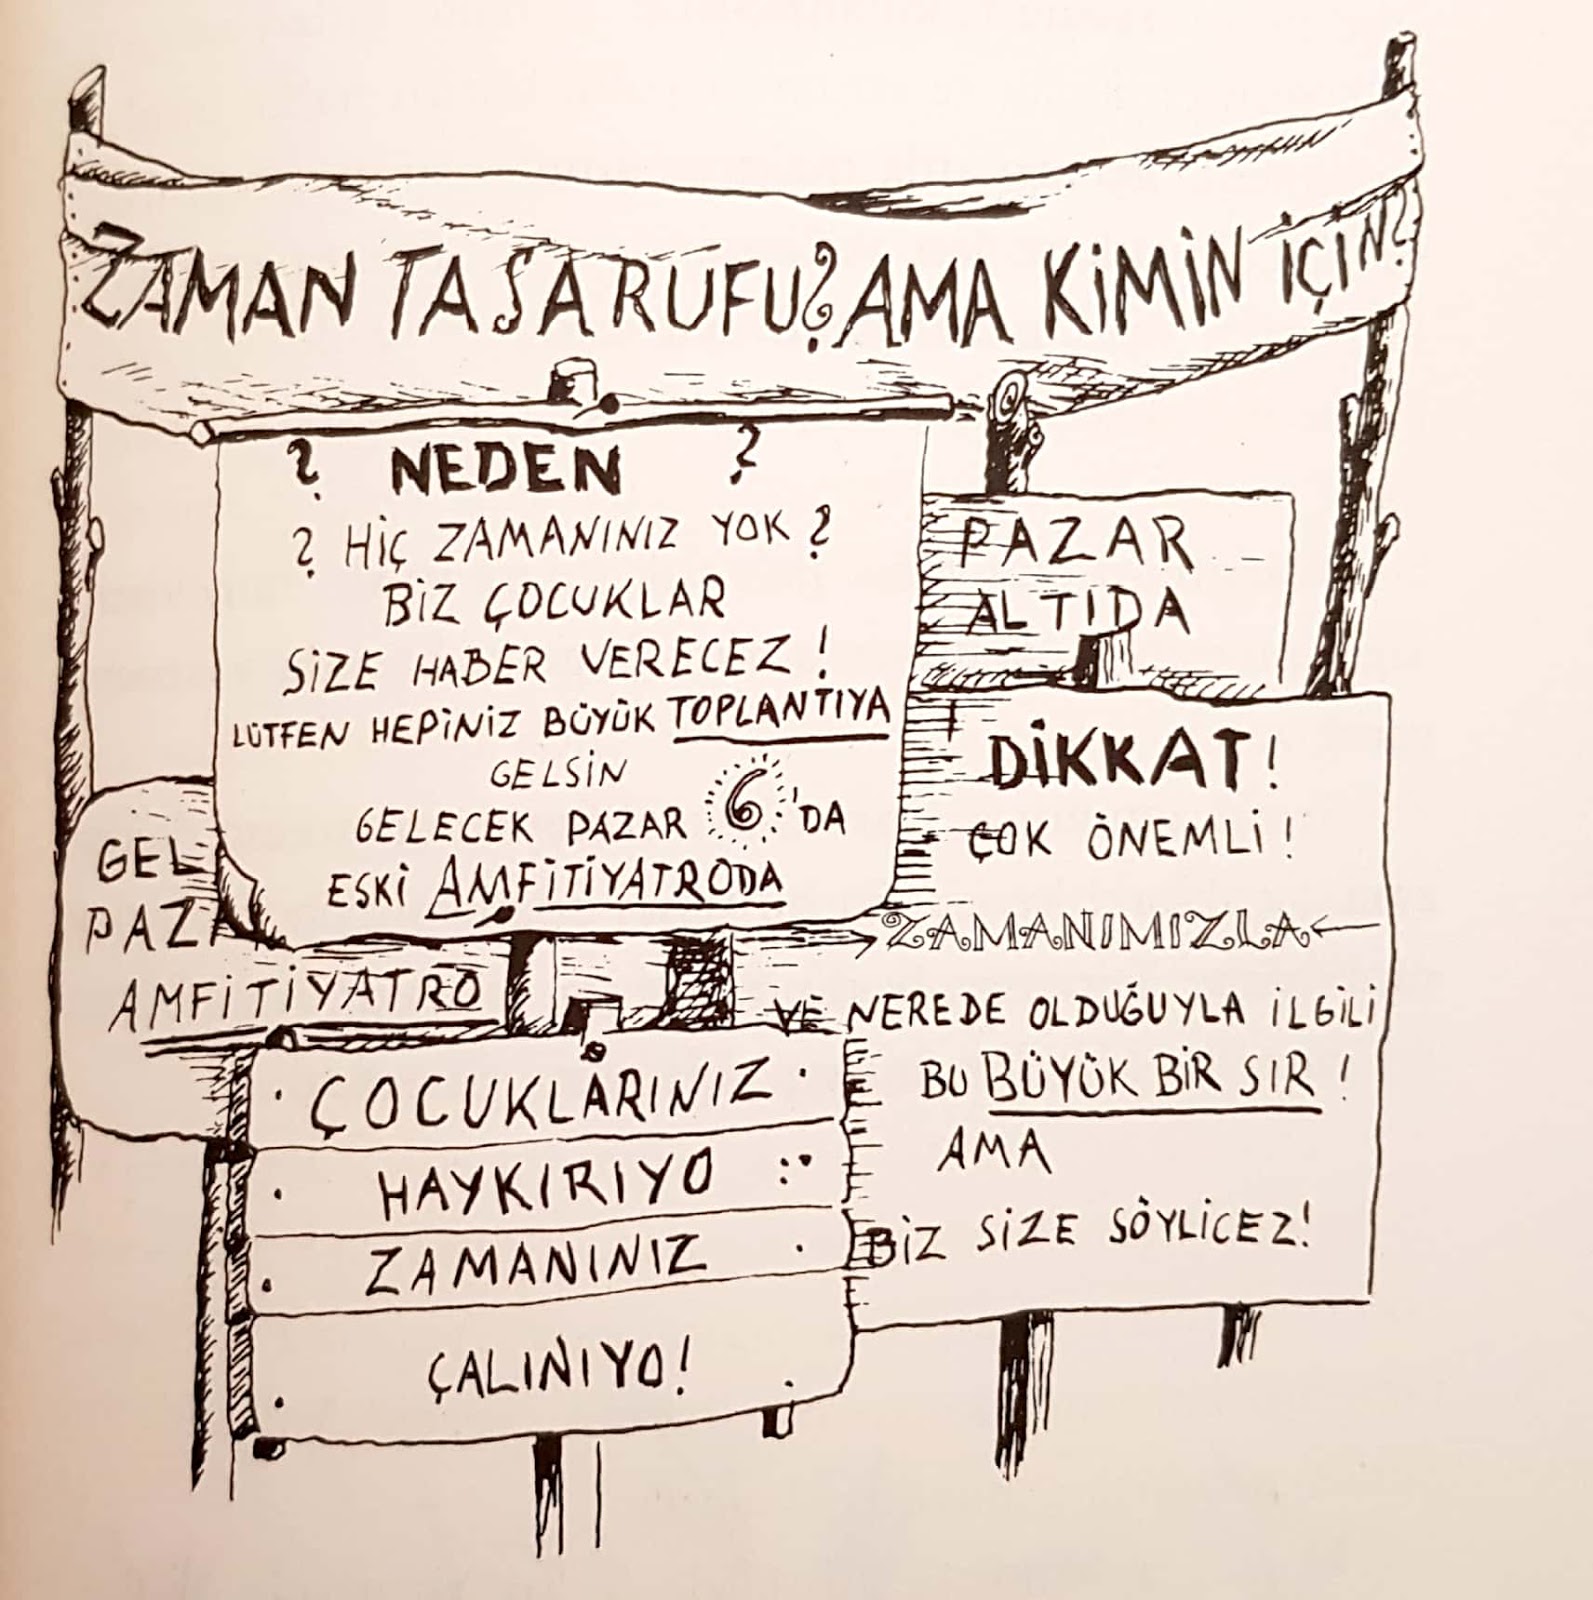 ZAMAN TASARUFU? AMA KİMİN İÇİN?
? NEDEN ?
? HİÇ ZAMANINIZ YOK ?
BİZ ÇOCUKLAR
SİZE HABER VERECEZ !
LÜTFEN HEPİNİZ BÜYÜK TOPLANTIYA
GELSİN
GELECEK PAZAR 6'DA
ESKİ AMFİTİYATRODA
PAZAR
ALTIDA
DİKKAT!
ÇOK ÖNEMLİ!
ZAMANIMIZLA
VE NEREDE OLDUĞUYLA İLGİLİ
BU BÜYÜK BİR SIR !
AMA
BİZ SİZE SÖYLİCEZ!
GEL
PAZA
AMFİTİYATRO
ÇOCUKLARINIZ
HAYKIRIYO
ZAMANINIZ
ÇALINIYO!